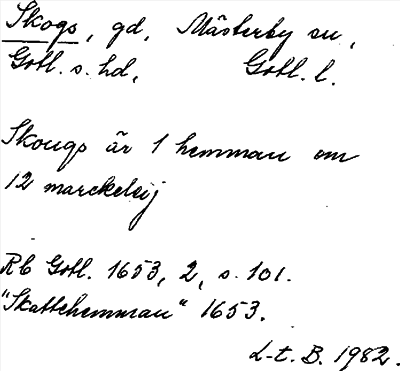 Skogs, gd, Mästerby sn,
Gotl. s. hd, Gotl. l.
Skougs är 1 hemman om
12 marckeleij
Rb Gotl. 1653, 2, s. 101.
"Skattehemman" 1653.
L-t. B. 1982.